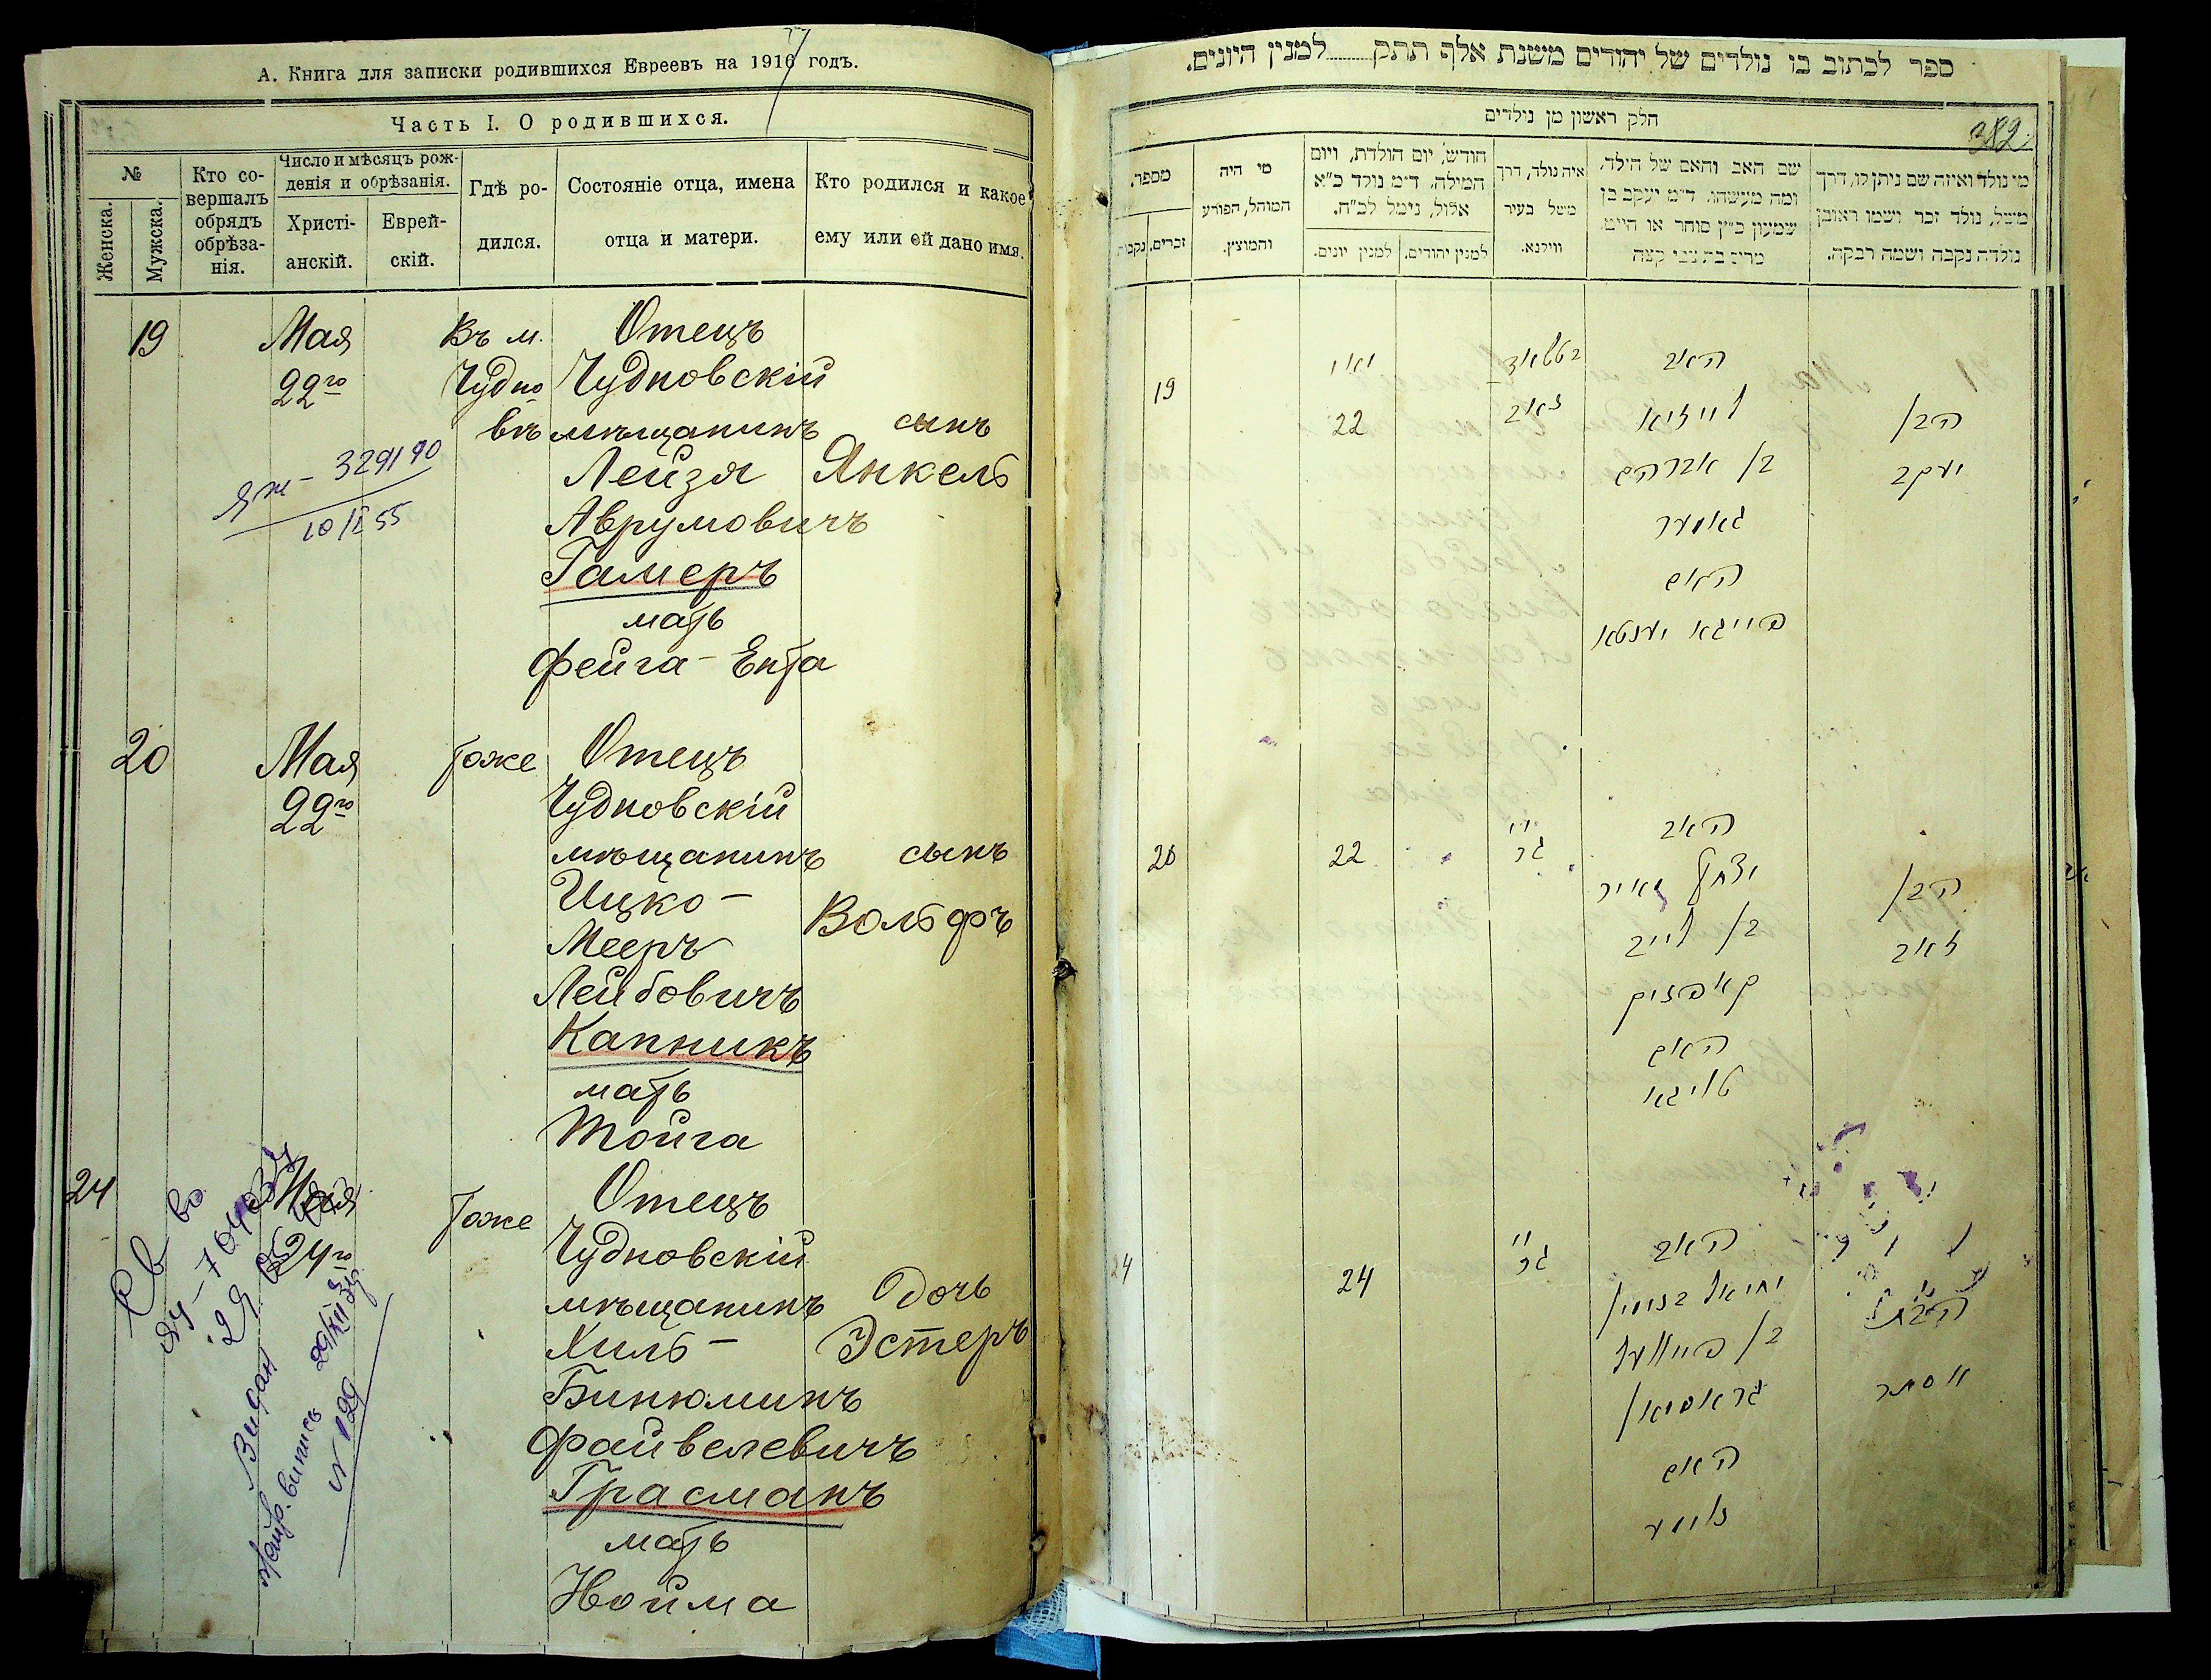 А. Книга для записки родившихся Евреевъ на 1917 годъ.
Часть I. О родившихся.
№
Женска.
Мужска.
Кто со-
вершалъ
обрядъ
обрѣза-
нія.
Число и мѣсяцъ рож-
денія и обрѣзанія.
Христі-
анскій.
Еврей-
скій.
Гдѣ ро-
дился.
Состояніе отца, имена
отца и матери.
Кто родился и какое
ему или ей дано имя.
19
Мая
22го
Въ м.
Чудно
вѣ
Отецъ
Чудновскій
мѣщанинъ
Лейзя
Аврумовичъ
Гамеръ
мать
Фейга - Ента
сынъ
Янкель
329190
20
Мая
22го
тоже
Отецъ
Чудновскій
мѣщанинъ
Ицко -
Мееръ
Лейбовичъ
Капникъ
мать
Тойга
сынъ
Вольфъ
24
Мая
24го
тоже
Отецъ
Чудновскій
мѣщанинъ
Хиль -
Бинюминъ
Файвелевичъ
Грасманъ
мать
Нойма
Дочь
Эстеръ
N 129
ספר לכתוב בו נולדים של יהודים משנת אלף תתק........למנין היונים.
חלק ראשון מן נולדים
382
מספר.
זכרים.
נקבות
מי היה
המוהל, הפורע
והמוצץ.
חודש, יום הולדת, ויום
המילה, ד״מ נולד כ״א
אלול, נימל לכ״ח.
למנין יונים.
למנין יהודים.
איה נולד, דרך
משל בעיר
ווילנא.
שם האב והאם של הילד,
ומה מעשהו, ד״מ יעקב בן
שמעון כ״ץ סוחר או חייט,
מי נולד ואיזה שם ניתן לו, דרך
משל, נולד זכר ושמו ראובן
נולדה נקבה ושמה רבקה.
19
22
האב
לייזיא
בן אברהם
גאמער
האם
פייגא יענטא
הבן
יעקב
20
22
האב
יצחק מאיר
בן לייב
קאפניק
האם
טויגא
הבן
זאב
24
24
האב
יחיאל בנימין
בן פייוועל
גראסמאן
האם
הבת
אסתר